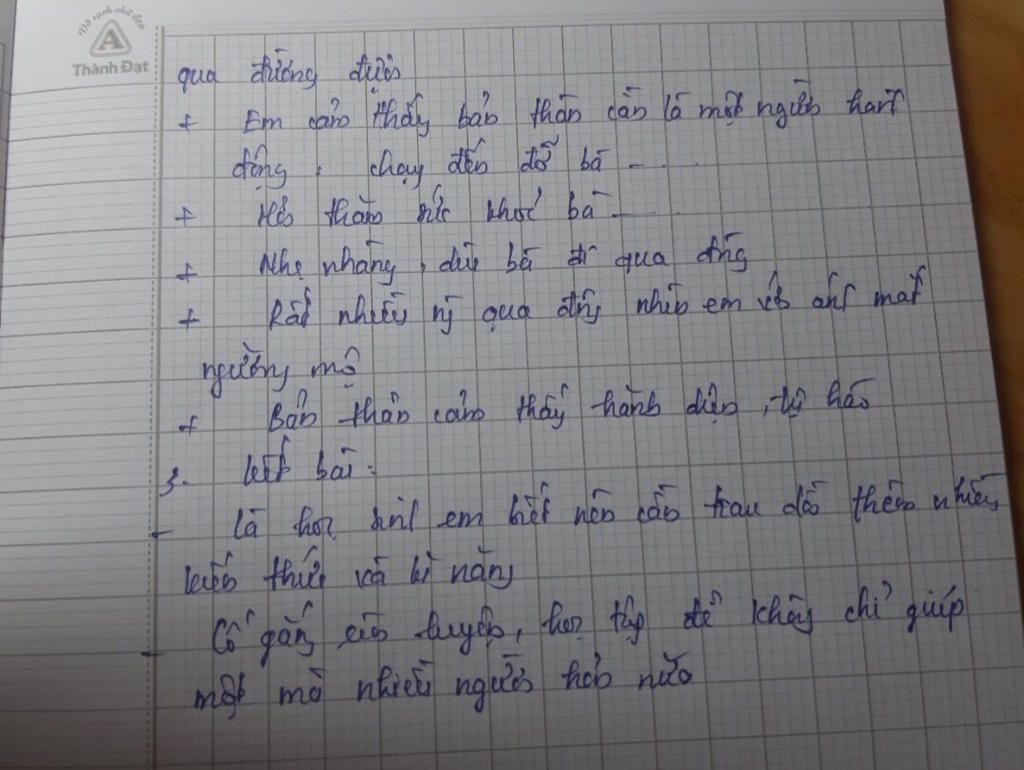 Vở sạch chữ đẹp
A
Thành Đạt
qua đường được
+ Em cảm thấy bản thân cần là một người hành
động, chạy đến đỡ bà - . . .
+ Hỏi thăm sức khoẻ bà - . . .
+ Nhẹ nhàng, dìu bà đi qua đường
+ Rất nhiều ng qua đường nhìn em với ánh mắt
ngưỡng mộ
+ Bản thân cảm thấy hãnh diện, tự hào
3. Kết bài:
- Là học sinh em biết nên cần trau dồi thêm nhiều
kiến thức và kĩ năng
- Cố gắng rèn luyện, học tập để không chỉ giúp
một mà nhiều người hơn nữa